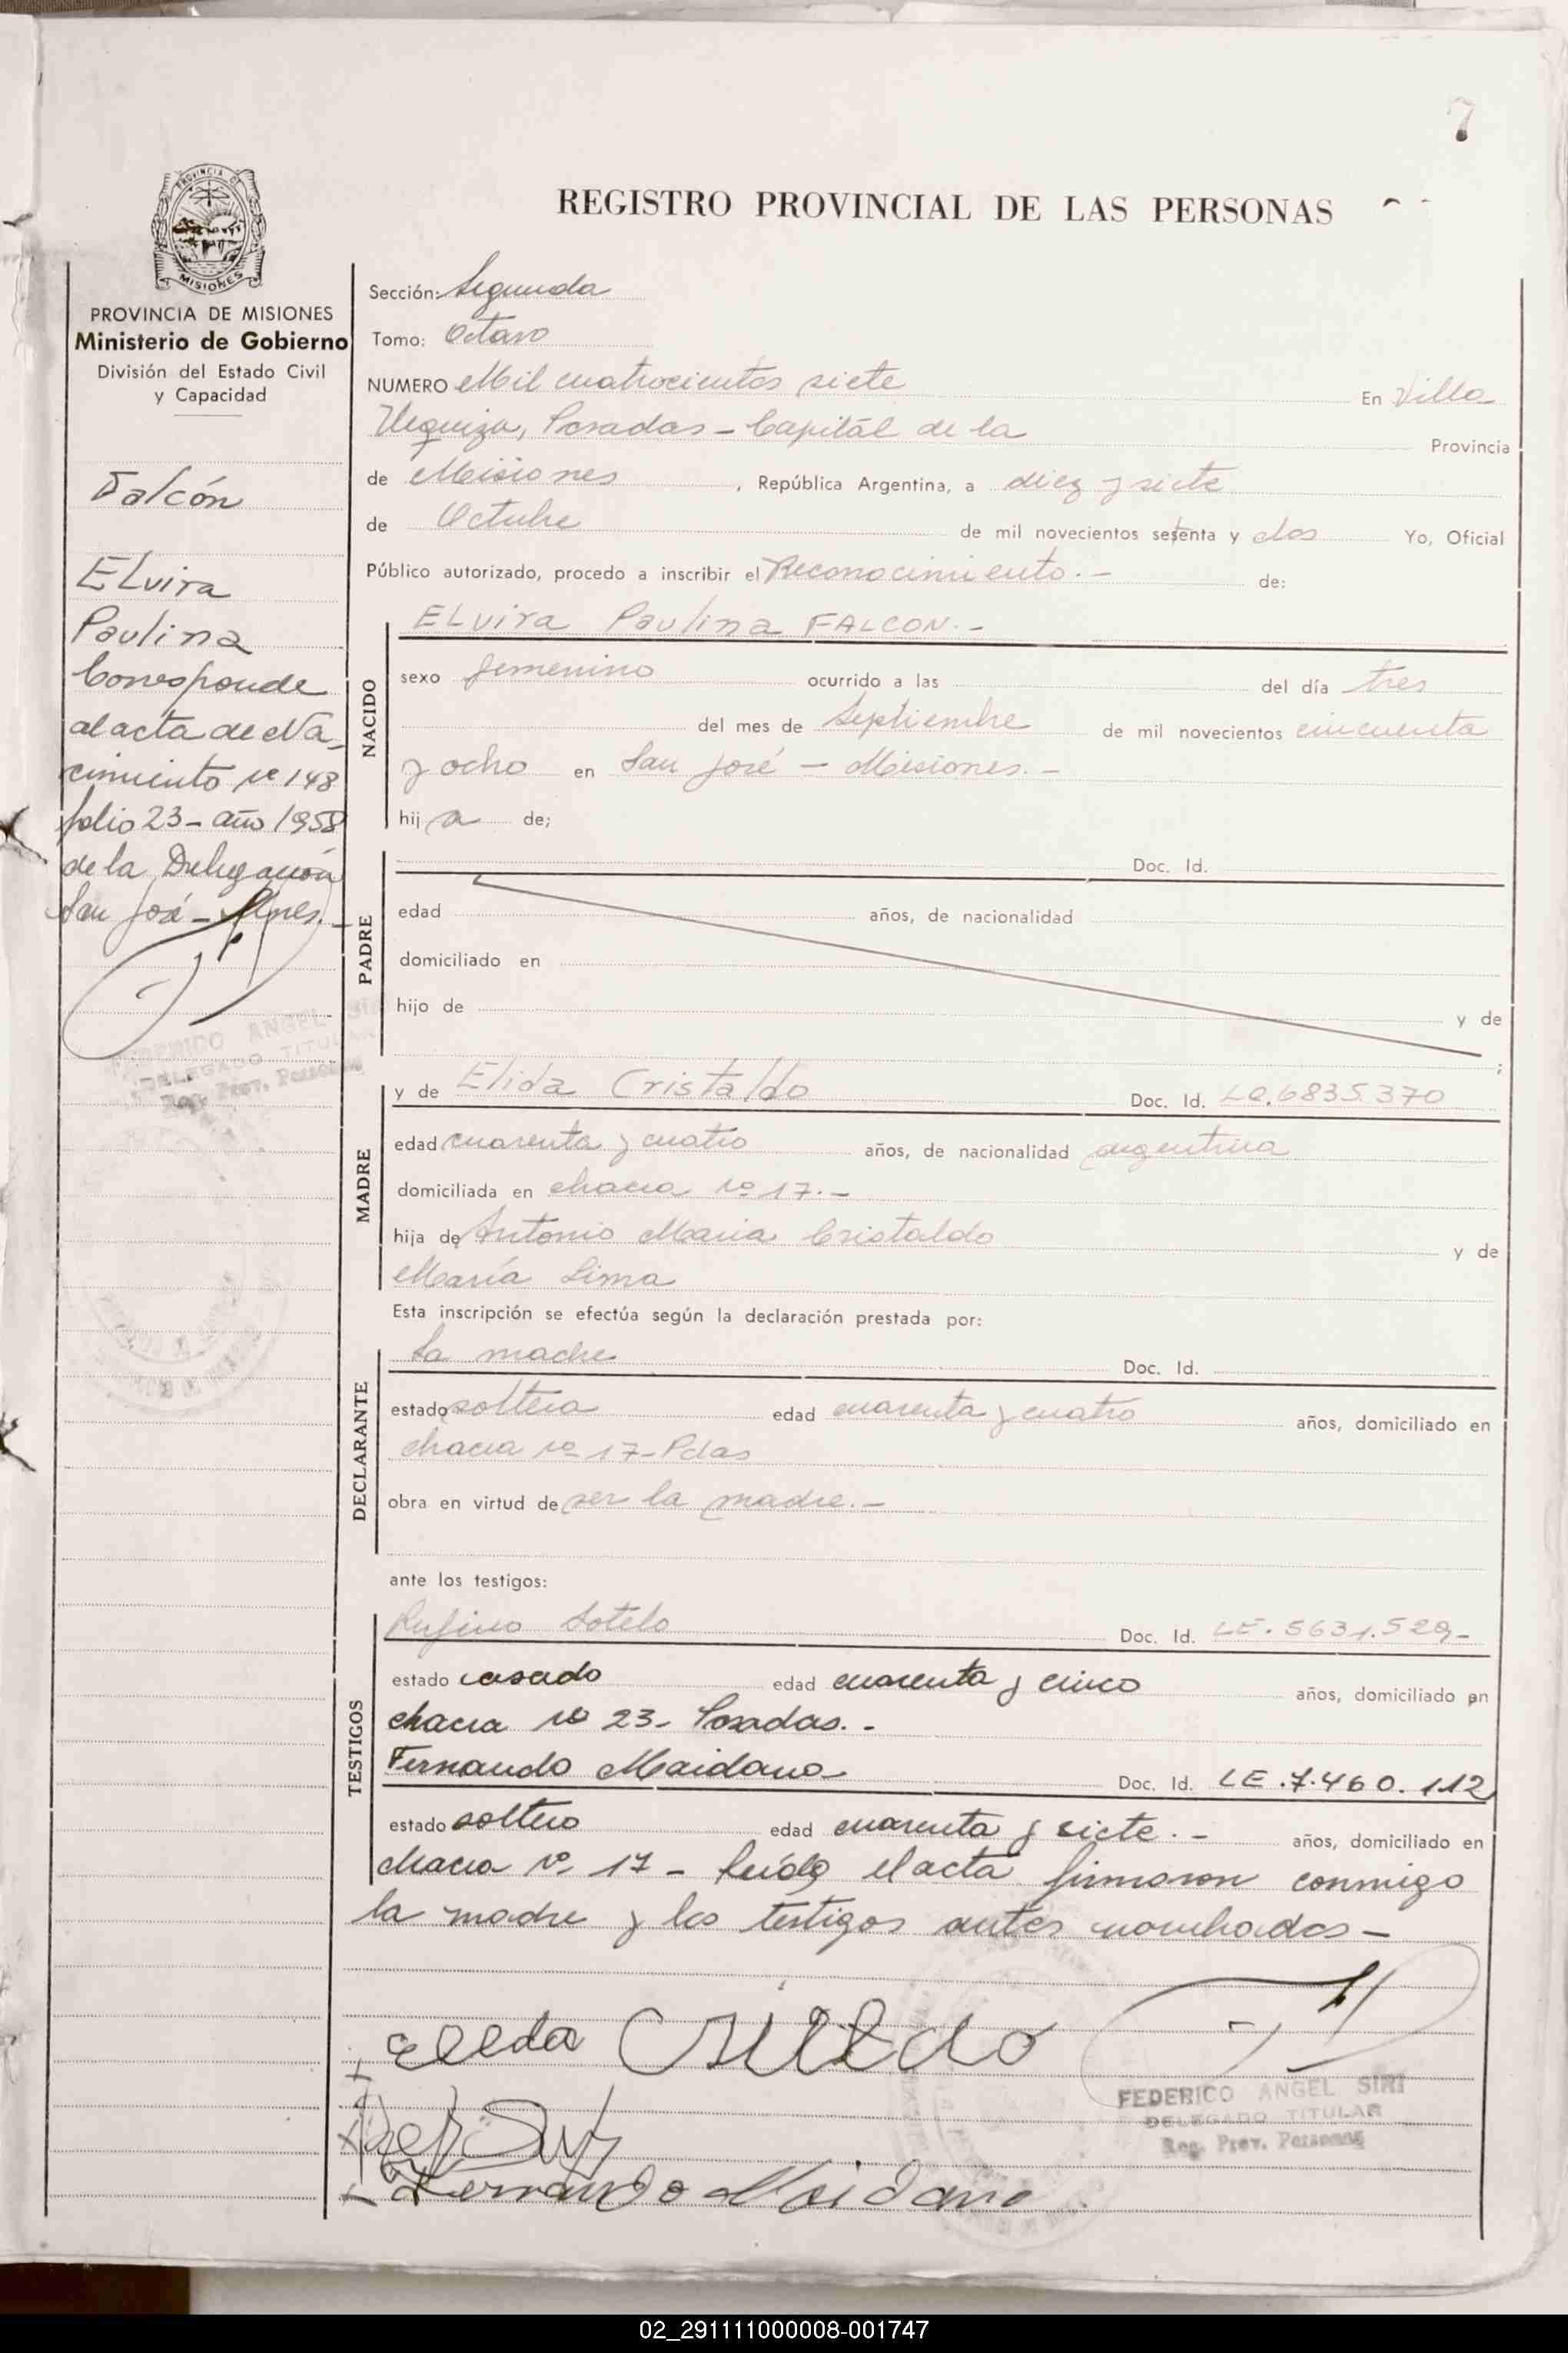 7
PROVINCIA DE
MISIONES
REGISTRO PROVINCIAL DE LAS PERSONAS
PROVINCIA DE MISIONES
Ministerio de Gobierno
División del Estado Civil
y Capacidad
Falcón
Elvira
Paulina
Corresponde
al acta de Na-
cimiento nº 148
folio 23 - año 1958
de la Delegación
San José - Mnes.
FEDERICO ANGEL SIRI
DELEGADO TITULAR
Reg. Prov. Personas
Sección: Segunda
Tomo: Octavo
NUMERO Mil cuatrocientos siete En Villa
Urquiza, Posadas - Capital de la Provincia
de Misiones, República Argentina, a diez y siete
de Octubre de mil novecientos setenta y dos Yo, Oficial
Público autorizado, procedo a inscribir el Reconocimiento. - de:
NACIDO
Elvira Paulina FALCON. -
sexo femenino ocurrido a las del día tres
del mes de Septiembre de mil novecientos cincuenta
y ocho en San José - Misiones. -
hij a de;
PADRE
Doc. Id.
edad años, de nacionalidad
domiciliado en
hijo de y de
;
MADRE
y de Elida Cristaldo Doc. Id. LC.6835.370
edad cuarenta y cuatro años, de nacionalidad argentina
domiciliada en chacra nº 17. -
hija de Antonio Maria Cristaldo y de
María Lima
Esta inscripción se efectúa según la declaración prestada por:
DECLARANTE
La madre Doc. Id.
estado soltera edad cuarenta y cuatro años, domiciliado en
chacra nº 17 - Pdas
obra en virtud de ser la madre. -
ante los testigos:
TESTIGOS
Rufino Sotelo Doc. Id. LE. 5631.529 -
estado casado edad cuarenta y cinco años, domiciliado en
chacra nº 23 - Posadas. -
Fernando Maidana Doc. Id. LE .7.460.112
estado soltero edad cuarenta y siete. - años, domiciliado en
chacra nº 17 - Leída el acta firmaron conmigo
la madre y los testigos antes nombrados -
Elida Cristaldo
FEDERICO ANGEL SIRI
DELEGADO TITULAR
Reg. Prov. Personas
Fernando Maidana
02_291111000008-001747